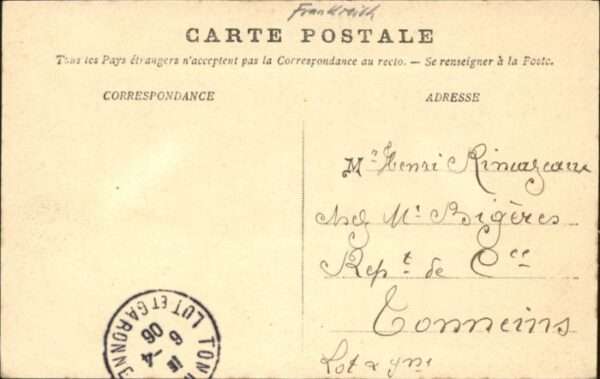 Frankreich
CARTE POSTALE
Tous les Pays étrangers n'acceptent pas la Correspondance au recto. — Se renseigner à la Poste.
CORRESPONDANCE
ADRESSE
Mr Henri Rimazeau
chez Mr Bigères
Rept de Cce
Tonneins
Lot & gne
TONN
LOT ET GARONNE
6
06